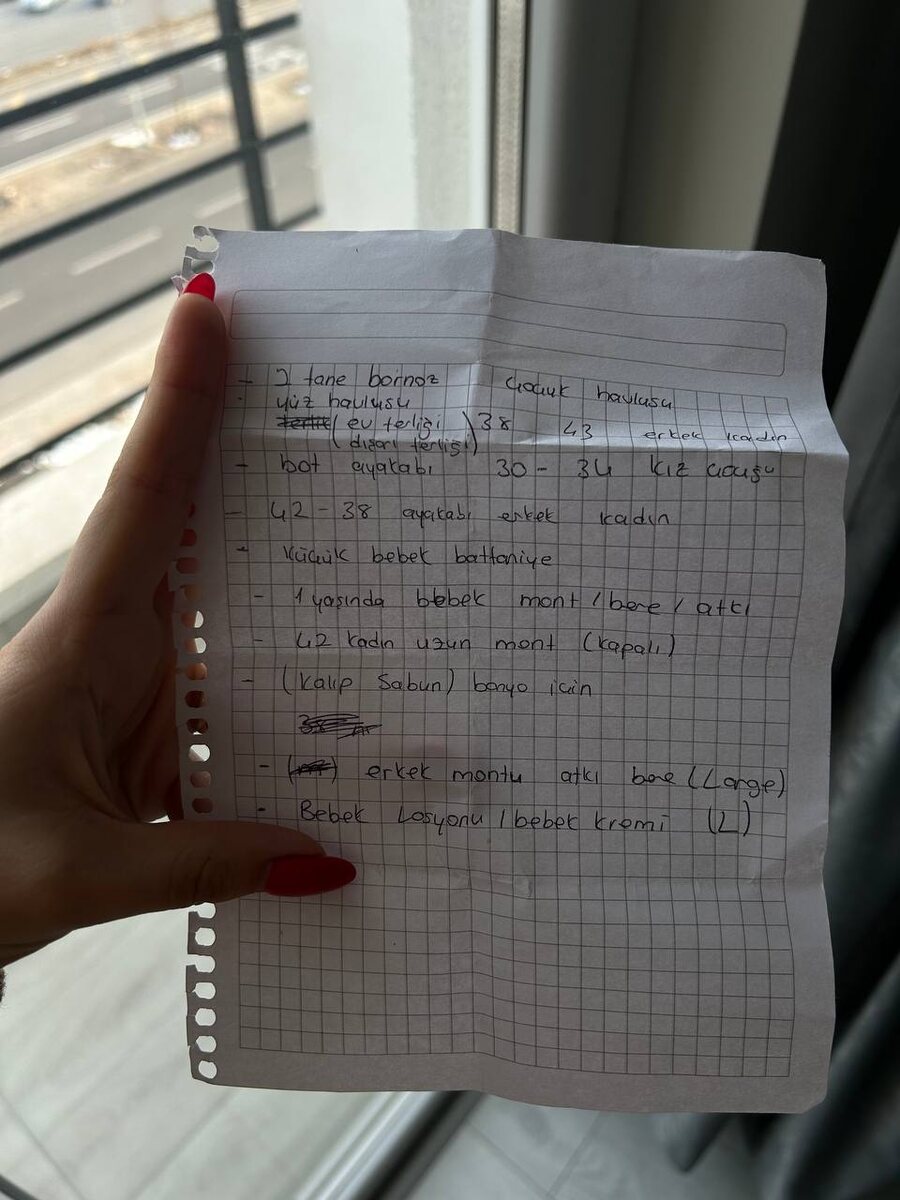 - 2 tane bornoz çocuk havlusu
yüz havlusu
(ev terliği 38 43 erkek kadın
dışarı terliği)
- bot ayakabı 30 - 34 kız çocuğu
- 42 - 38 ayakabı erkek kadın
- küçük bebek battaniye
- 1 yaşında bebek mont / bere / atkı
- 42 kadın uzun mont (kapalı)
- (kalıp sabun) banyo için
- erkek montu atkı bere (Large)
- Bebek Losyonu / bebek kremi (L)